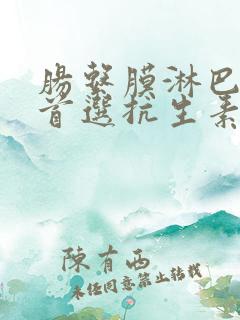 腸繫膜淋巴
首選抗生素
陳有西
未經同意禁止轉載